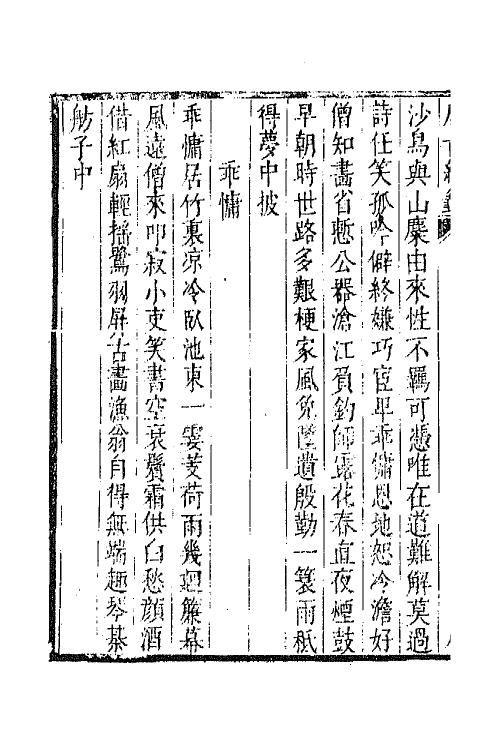 沙鳥與山麋由來性不羈可憑唯在道難解莫過
詩任笑孤吟僻終嫌巧宦卑乖慵恩地恕冷澹好
僧知畫省慙公器滄江負釣師露花春直夜煙鼓
早朝時世路多艱梗家風免墜遺殷勤一簑雨秖
得夢中披
乖慵
乖慵居竹裏凉冷臥池東一霎芰荷雨幾迴簾幕
風遠僧來叩寂小吏笑書空衰鬢霜供白愁顏酒
借紅扇輕搖鷺羽屏古畫漁翁自得無端趣琴棊
舫子中